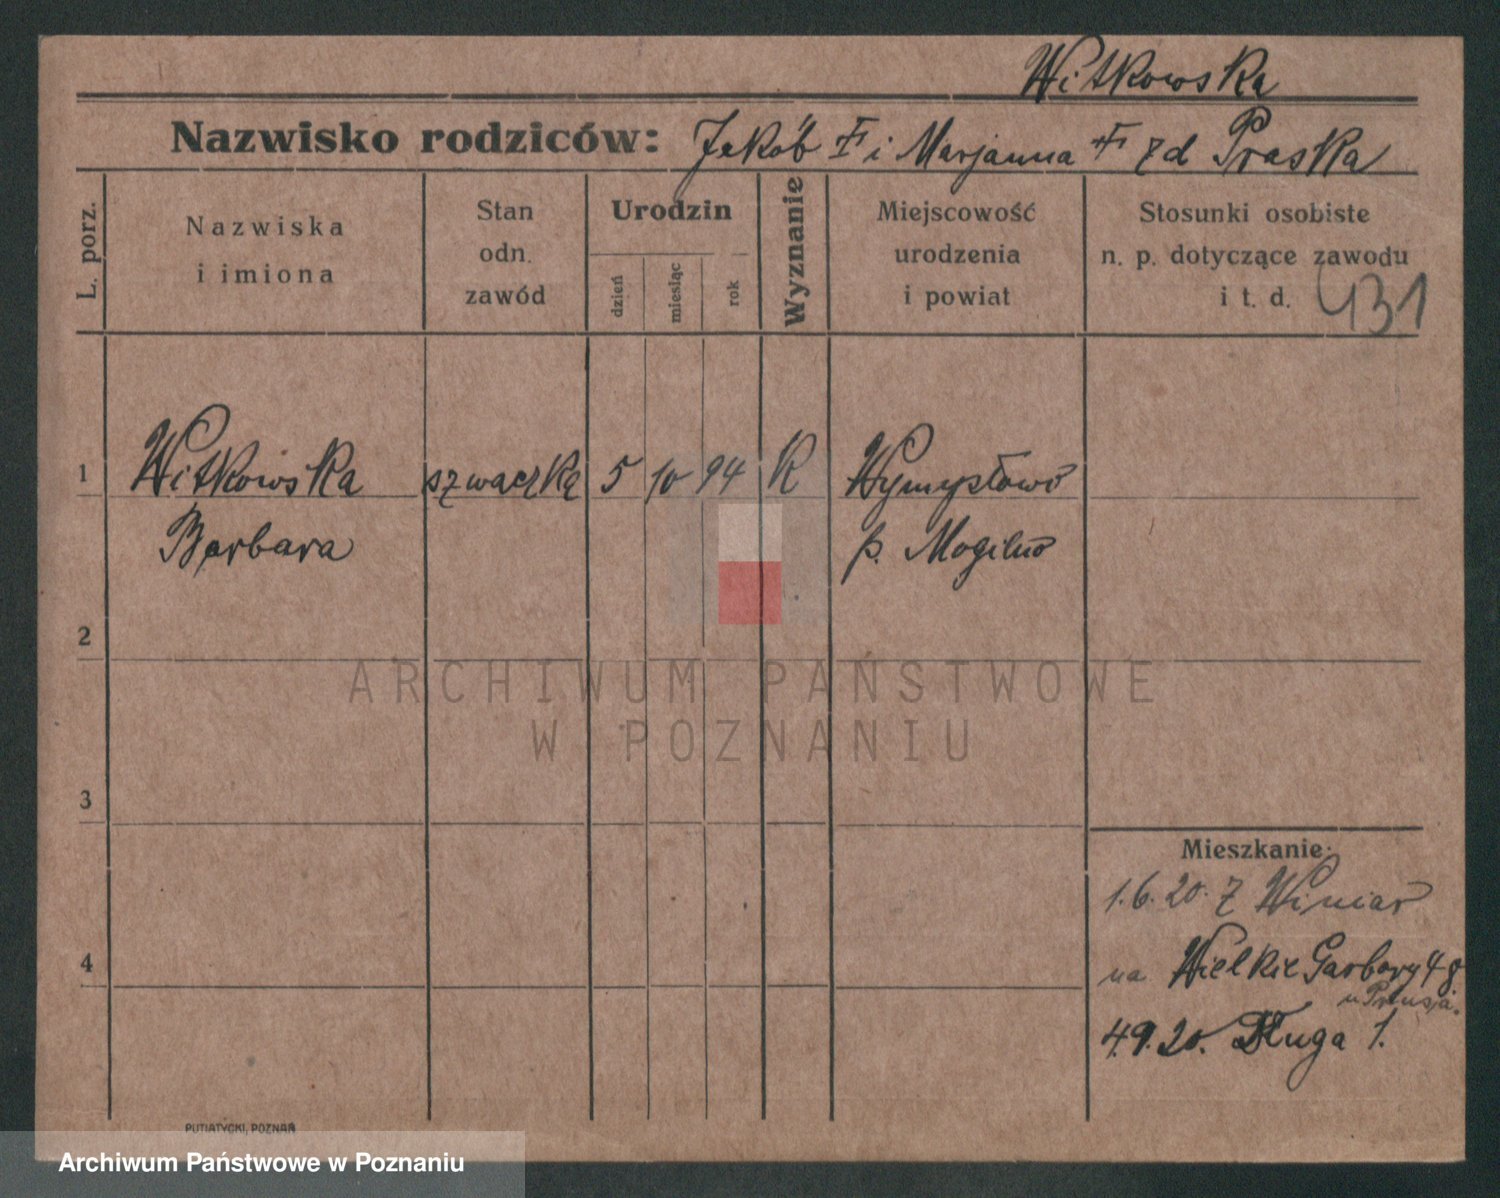 Witkowska
Nazwisko rodziców: Jakób + i Marjanna + zd Praska
L. porz.
Nazwiska
i imiona
Stan
odn.
zawód
Urodzin
dzień
miesiąc
rok
Wyznanie
Miejscowość
urodzenia
i powiat
Stosunki osobiste
n. p. dotyczące zawodu
i t. d.
431
1 Witkowska szwaczka 5 10 94 K Wymysłowo
Barbara p. Mogilno
2
3
4
Mieszkanie:
1.6.20. z Winiar
na Wielkie Garbary 48
u
4.9.20. Długa 1.
PUTIATYCKI, POZNAŃ
ARCHIWUM PAŃSTWOWE
W POZNANIU
Archiwum Państwowe w Poznaniu